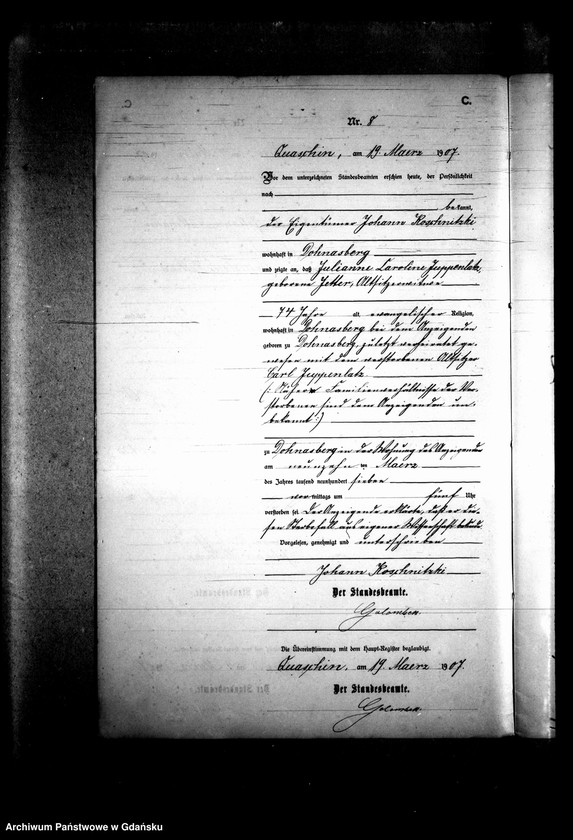 C.
Nr. 8
Quaschin, am 19. Maerz 1907.
Vor dem unterzeichneten Standesbeamten erschien heute, der Persönlichkeit
nach
bekannt,
der Eigentümer Johann Koschnitzki
wohnhaft in Dohnasberg
und zeigte an, daß Julianne Caroline Juppenlatz,
geborene Jetter, Altsitzerwitwe
74 Jahre alt, evangelischer Religion,
wohnhaft in Dohnasberg bei dem Anzeigenden
geboren zu Dohnasberg, zuletzt verheiratet ge-
wesen mit dem verstorbenen Altsitzer
Carl Juppenlatz
(: Nähere Familienverhältnisse der Ver-
storbenen sind dem Anzeigenden un-
bekannt :)
zu Dohnasberg in der Wohnung des Anzeigenden
am neunzehn Maerz
des Jahres tausend neunhundert sieben
vormittags um fünf Uhr
verstorben sei. Der Anzeigende erklärte, daß er die-
sen Sterbefall aus eigener Wissenschaft bekunde.
Vorgelesen, genehmigt und unterschrieben
Johann Koschnitzki
Der Standesbeamte.
Golombek.
Die Übereinstimmung mit dem Haupt-Register beglaubigt.
Quaschin, am 19. Maerz 1907.
Der Standesbeamte.
Golombek.
Archiwum Państwowe w Gdańsku